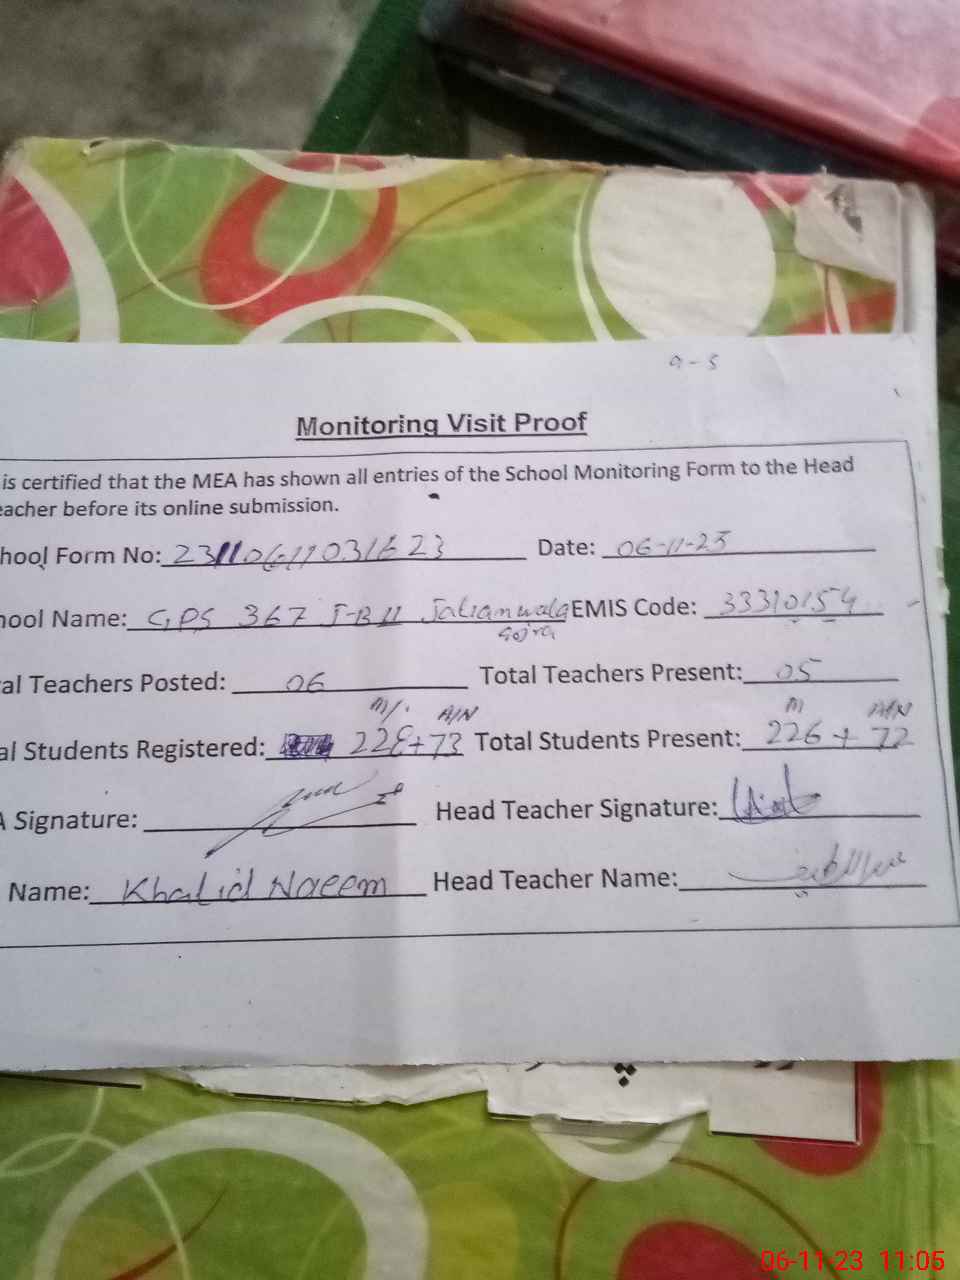 9-5
Monitoring Visit Proof
is certified that the MEA has shown all entries of the School Monitoring Form to the Head
eacher before its online submission.
hool Form No: 23110611031623 Date: 06-11-23
hool Name: GPS 367 J-B II Jalianwala EMIS Code: 33310154
Gojra
al Teachers Posted: 06 Total Teachers Present: 05
M/. A/N M A/N
al Students Registered: 228+73 Total Students Present: 226+72
A Signature: Head Teacher Signature:
Name: Khalid Naeem Head Teacher Name:
06-11-23 11:05